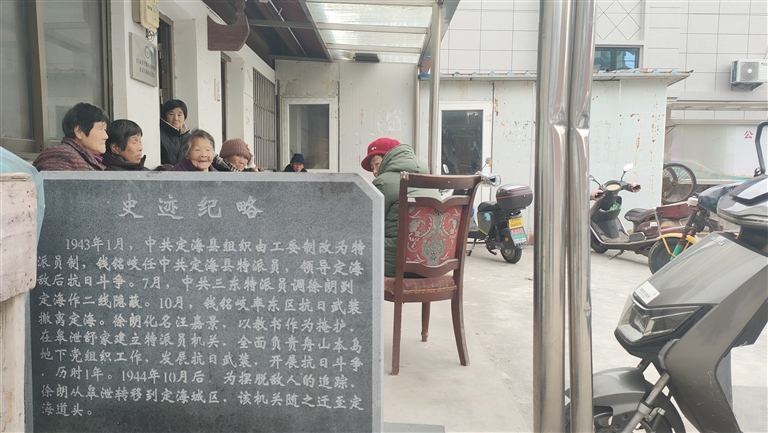 史迹纪略
1943年1月，中共定海县组织由工委制改为特
派员制，钱铭岐任中共定海县特派员，领导定海
敌后抗日斗争。7月，中共三东特派员调徐朗到
定海作二线隐蔽。10月，钱铭岐率东区抗日武装
撤离定海。徐朗化名汪嘉景，以教书作为掩护，
在皋泄舒家建立特派员机关，全面负责舟山本岛
地下党组织工作，发展抗日武装，开展抗日斗争
，历时1年。1944年10月后，为摆脱敌人的追踪，
徐朗从皋泄转移到定海城区，该机关随之迁至定
海道头。
公